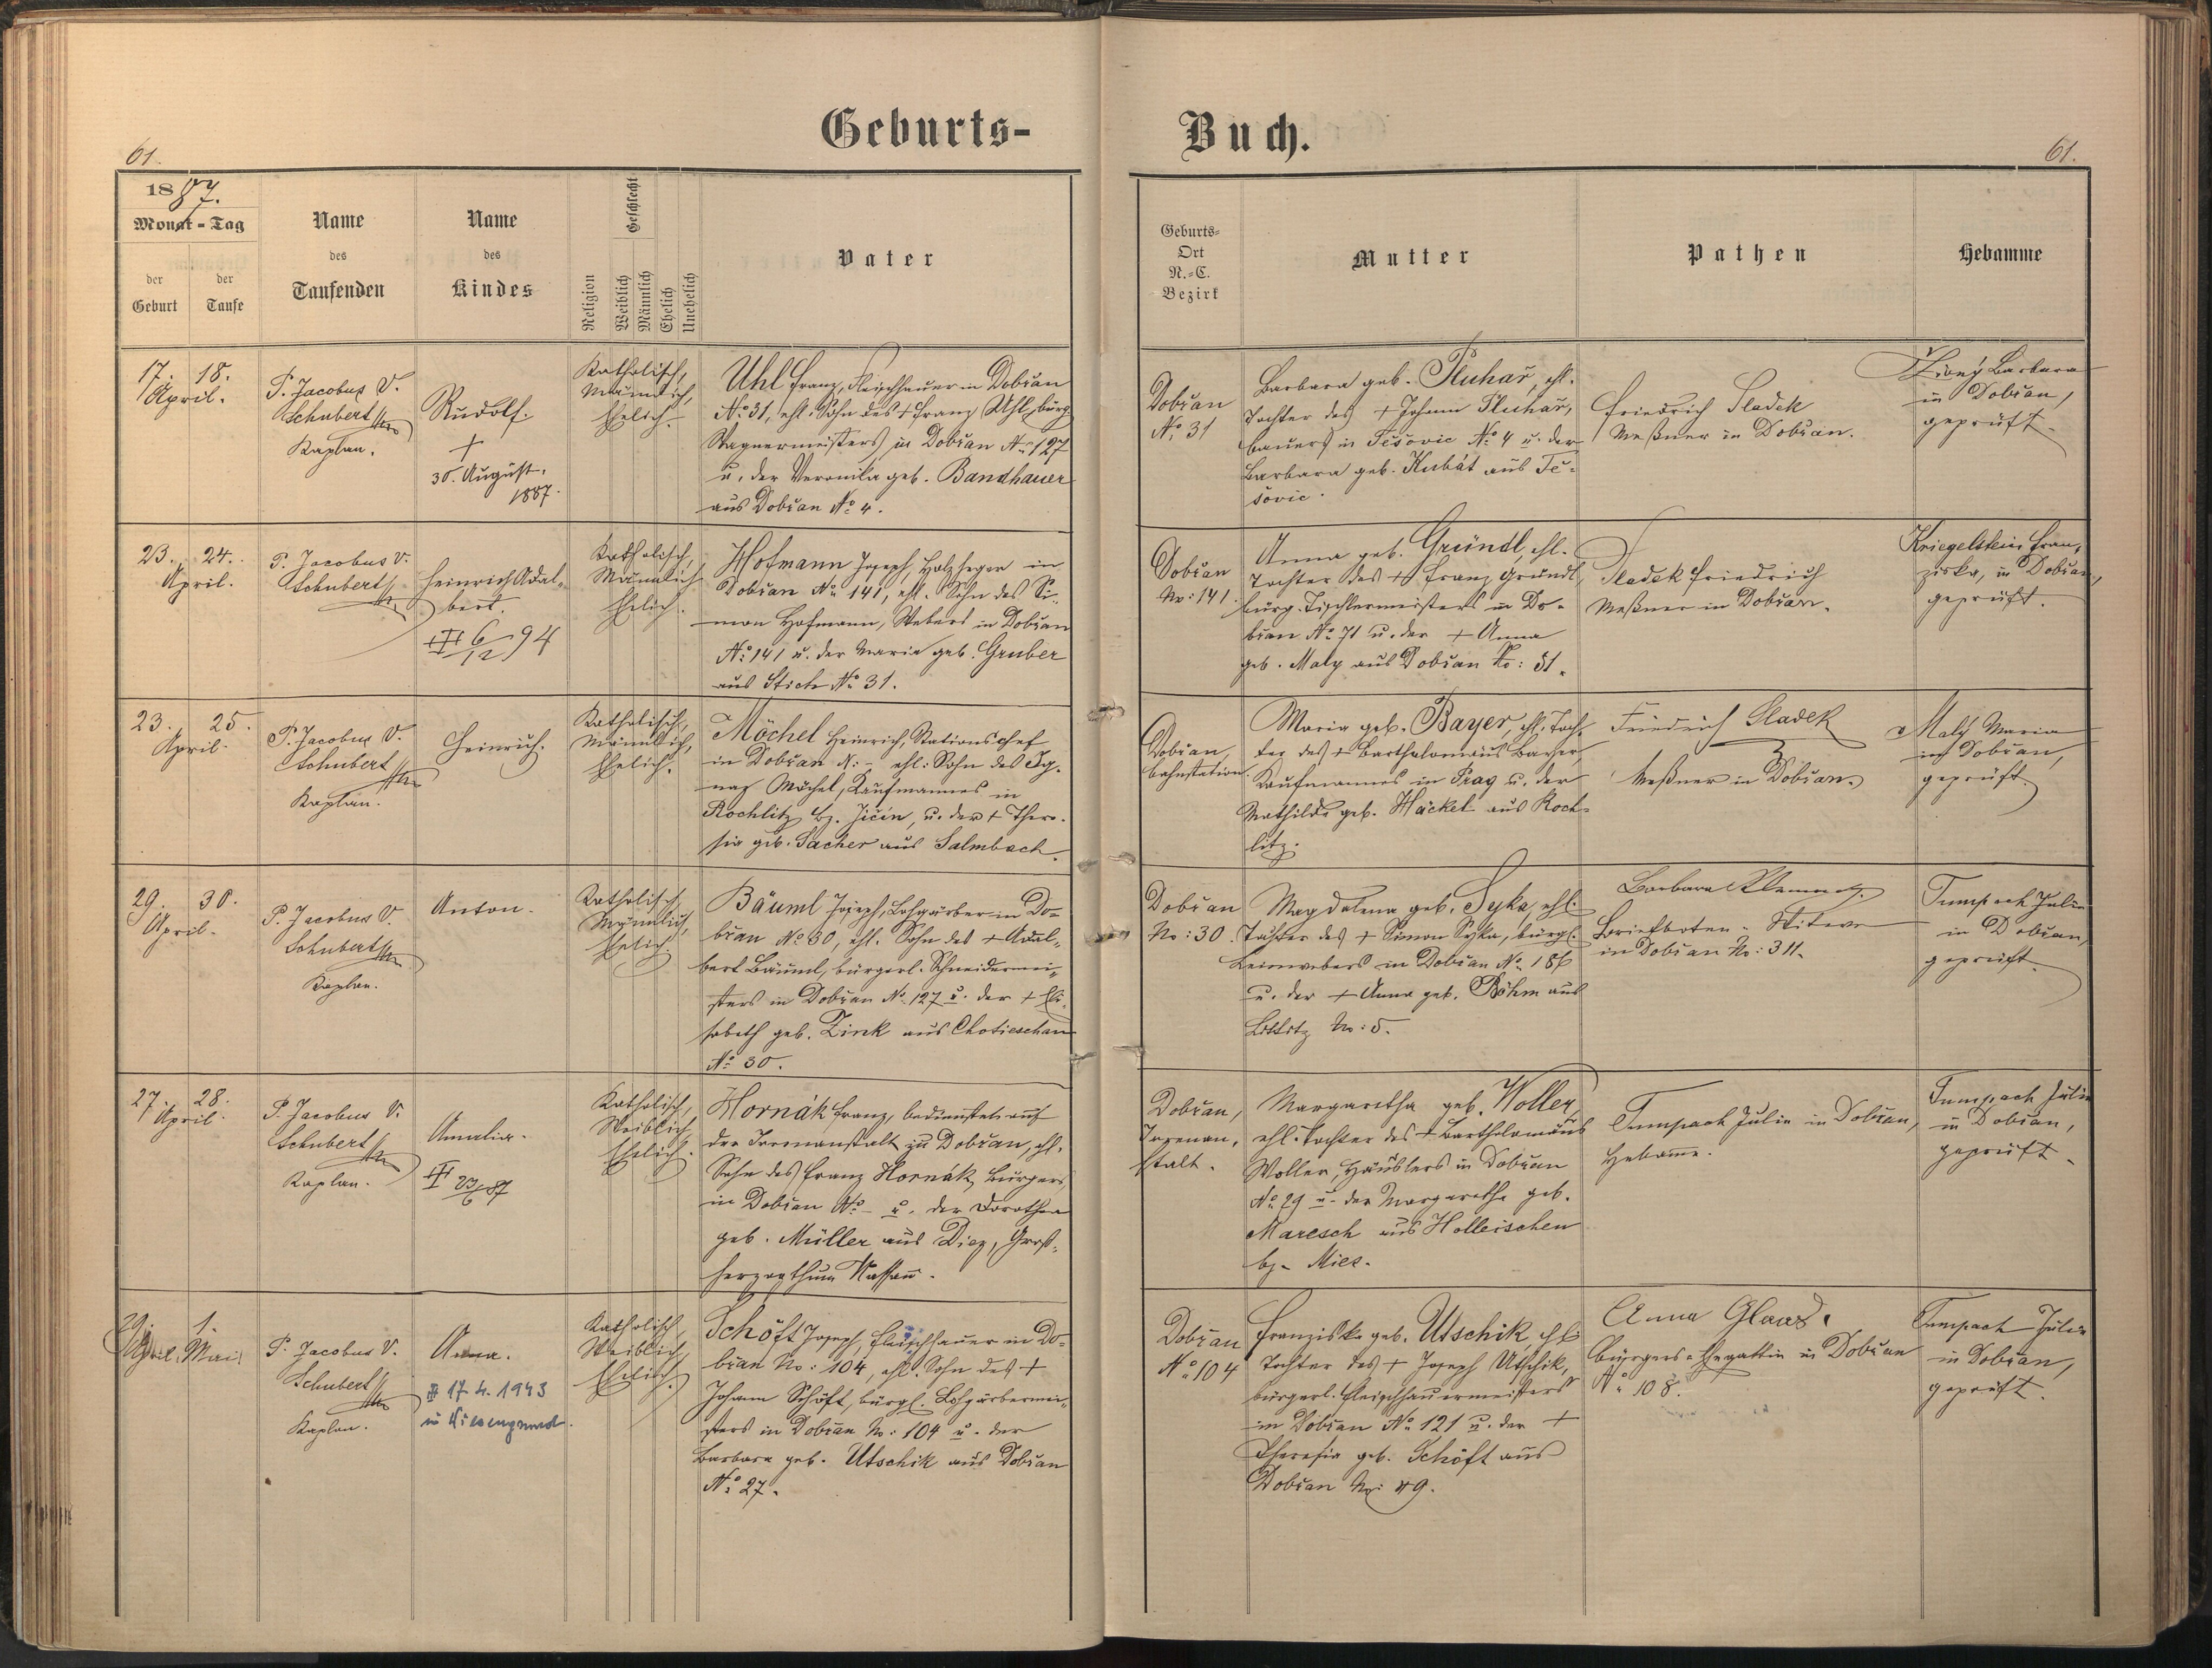 Geburts-
Buch.
61.
61.
1887.
Monat - Tag
der
Geburt
der
Taufe
Name
des
Taufenden
Name
des
Kindes
Religion
Geschlecht
Weiblich
Männlich
Ehelich
Unehelich
Vater
Geburts-
Ort
N.-C.
Bezirk
Mutter
Pathen
Hebamme
17. 18.
April.
P. Jacobus V.
Schubert
Kaplan.
Rudolf.
+
30. August.
1887.
Katholisch,
Männlich,
Ehelich.
Uhl Franz, Fleischhauer in Dobřan
No 31, ehl. Sohn des + Franz Uhl, bürg.
Wagnermeisters in Dobřan No 127
u. der Veronika geb. Bandhauer
aus Dobřan No 4.
Dobřan
No 31
Barbara geb. Pluhař, ehl.
Tochter des + Johann Pluhař,
Bauers in Tešovic No 4 u. der
Barbara geb. Kubát aus Te-
šovic.
Friedrich Sladek
Meßner in Dobřan.
Barbara
in Dobřan,
geprüft.
23. 24.
April.
P. Jacobus V.
Schubert
Heinrich Adal-
bert.
6/12 94
Katholisch,
Männlich
Ehelich.
Hofmann Joseph, Holzheger in
Dobřan No 141, ehl. Sohn des Si-
mon Hofmann, Webers in Dobřan
No 141 u. der Maria geb. Gruber
aus Stich No 31.
Dobřan
No: 141.
Anna geb. Gründl, ehl.
Tochter des + Franz Gründl,
bürg. Tischlermeisters in Do-
břan No 71 u. der + Anna
geb. Maly aus Dobřan No: 51.
Sladek Friedrich
Meßner in Dobřan.
Kriegelstein Fran-
ziska, in Dobřan,
geprüft.
23. 25.
April.
P. Jacobus V.
Schubert
Kaplan.
Heinrich.
Katholisch,
Männlich,
Ehelich.
Möchel Heinrich, Stationschef
in Dobřan N: - ehl: Sohn des Ig-
naz Möchel, Kaufmannes in
Rochlitz Bz. Jičin, u. der + There-
sia geb. Sacher aus Salmbach.
Dobřan,
Bahnstation.
Maria geb. Bayer, ehl. Toch-
ter des + Bartholomäus Bayer,
Kaufmannes in Prag u. der
Mathilde geb. Häckel aus Roch-
litz.
Friedrich Sladek
Meßner in Dobřan.
Malý Maria
in Dobřan,
geprüft.
29. 30.
April.
P. Jacobus V.
Schubert
Kaplan.
Anton.
Katholisch,
Männlich,
Ehelich.
Bäuml Joseph, Lohgärber in Do-
břan No 30, ehl. Sohn des + Adal-
bert Bäuml, bürgerl. Schneidermei-
sters in Dobřan No 127 u. der + Eli-
sabeth geb. Zink aus Chotieschau
No 30.
Dobřan
No: 30.
Magdalena geb. Syka, ehl.
Tochter des + Simon Syka, bürgl.
Leinwebers in Dobřan No 186
u. der + Anna geb. Böhm aus
Littitz No: 5.
Barbara
Briefboten - Witwe
in Dobřan No: 311.
Tumpach Julie
in Dobřan,
geprüft.
27. 28.
April.
P. Jacobus V.
Schubert
Kaplan.
Amalia.
23/6 87
Katholisch,
Weiblich
Ehelich.
Hornák Franz, Bediensteter auf
der Irrenanstalt zu Dobřan, ehl.
Sohn des Franz Hornák, Bürgers
in Dobřan No - u. der Dorothea
geb. Müller aus Diez, Groß-
herzogthum Nassau.
Dobřan,
Irrenan-
stalt.
Margaretha geb. Woller,
ehl. Tochter des + Bartholomäus
Woller, Häuslers in Dobřan
No 29 u. der Margaretha geb.
Maresch aus Holleischen
bz. Mies.
Tumpach Julie in Dobřan,
Hebamme.
Tumpach Julie
in Dobřan,
geprüft.
29. 1.
April. Mai
P. Jacobus V.
Schubert
Kaplan.
Anna.
17. 4. 1943
in Wiesengrund.
Katholisch,
Weiblich,
Ehelich.
Schöft Joseph, Fleischhauer in Do-
břan No: 104, ehl. Sohn des +
Johann Schöft, bürgl. Lohgärbermei-
sters in Dobřan No: 104 u. der
Barbara geb. Utschik aus Dobřan
No: 27.
Dobřan
No 104
Franziska geb. Utschik, ehl
Tochter des + Joseph Utschik,
bürgerl. Fleischhauermeisters
in Dobřan No 121 u. der +
Theresia geb. Schöft aus
Dobřan No: 49.
Anna Glaas.
Bürgers-Ehegattin in Dobřan
No 108.
Tumpach Julie
in Dobřan,
geprüft.